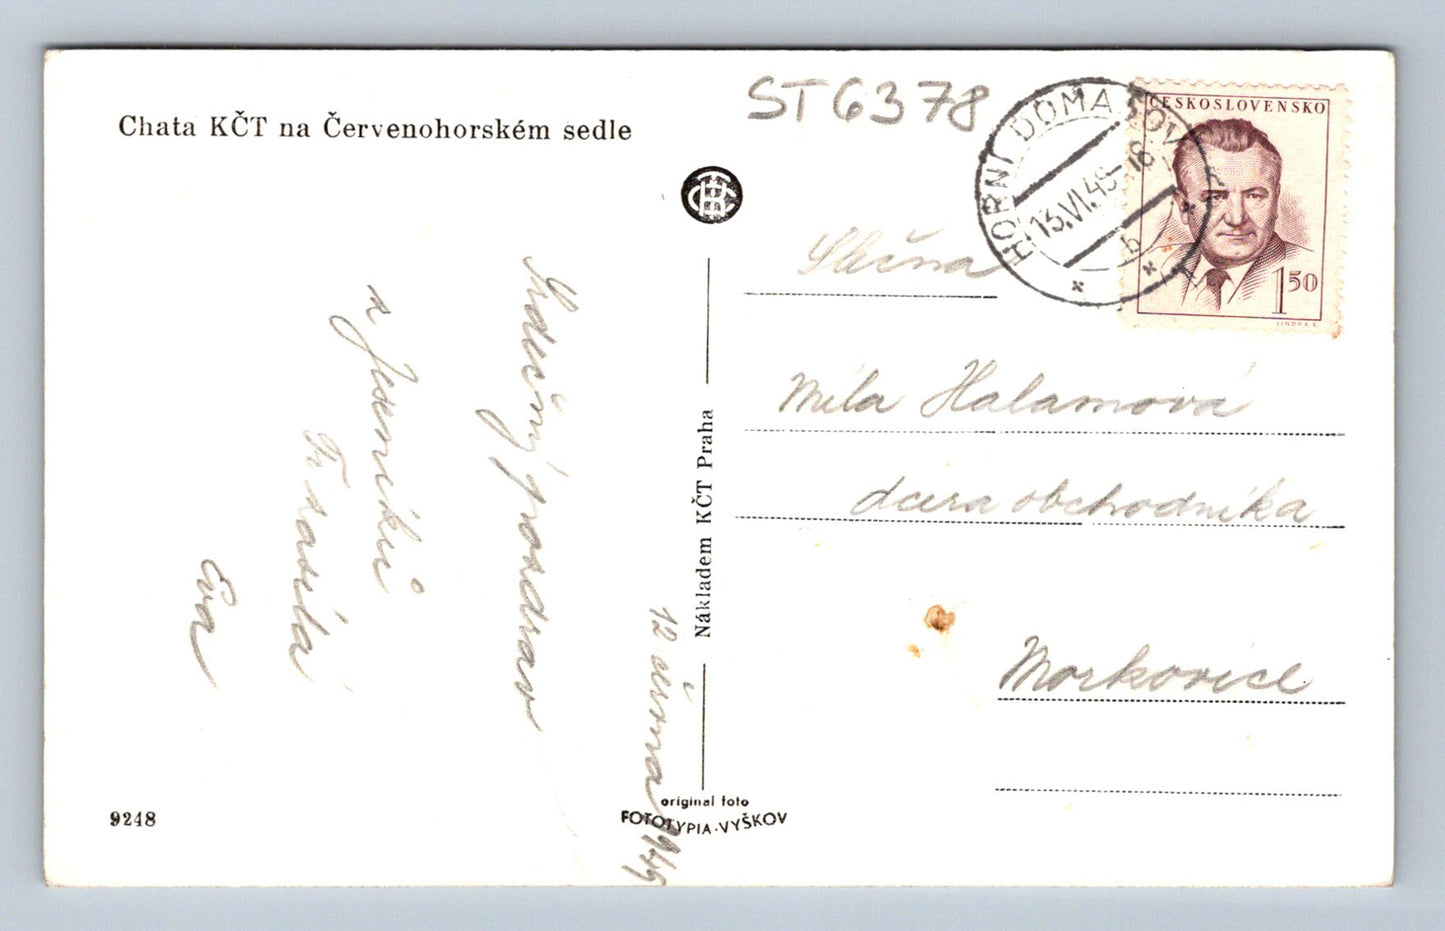 Chata KČT na Červenohorském sedle
ST6378
HORNÍ DOMAŠOV
13.VI.49-18
b
ČESKOSLOVENSKO
150
JINDRA S.
Slečna
Míla Halamová
dcera obchodníka
Morkovice
Srdečný pozdrav
z Jeseníků
Ti zasílá
Eva
12 června 1949
Nákladem KČT Praha
original foto
FOTOTYPIA-VYŠKOV
9248